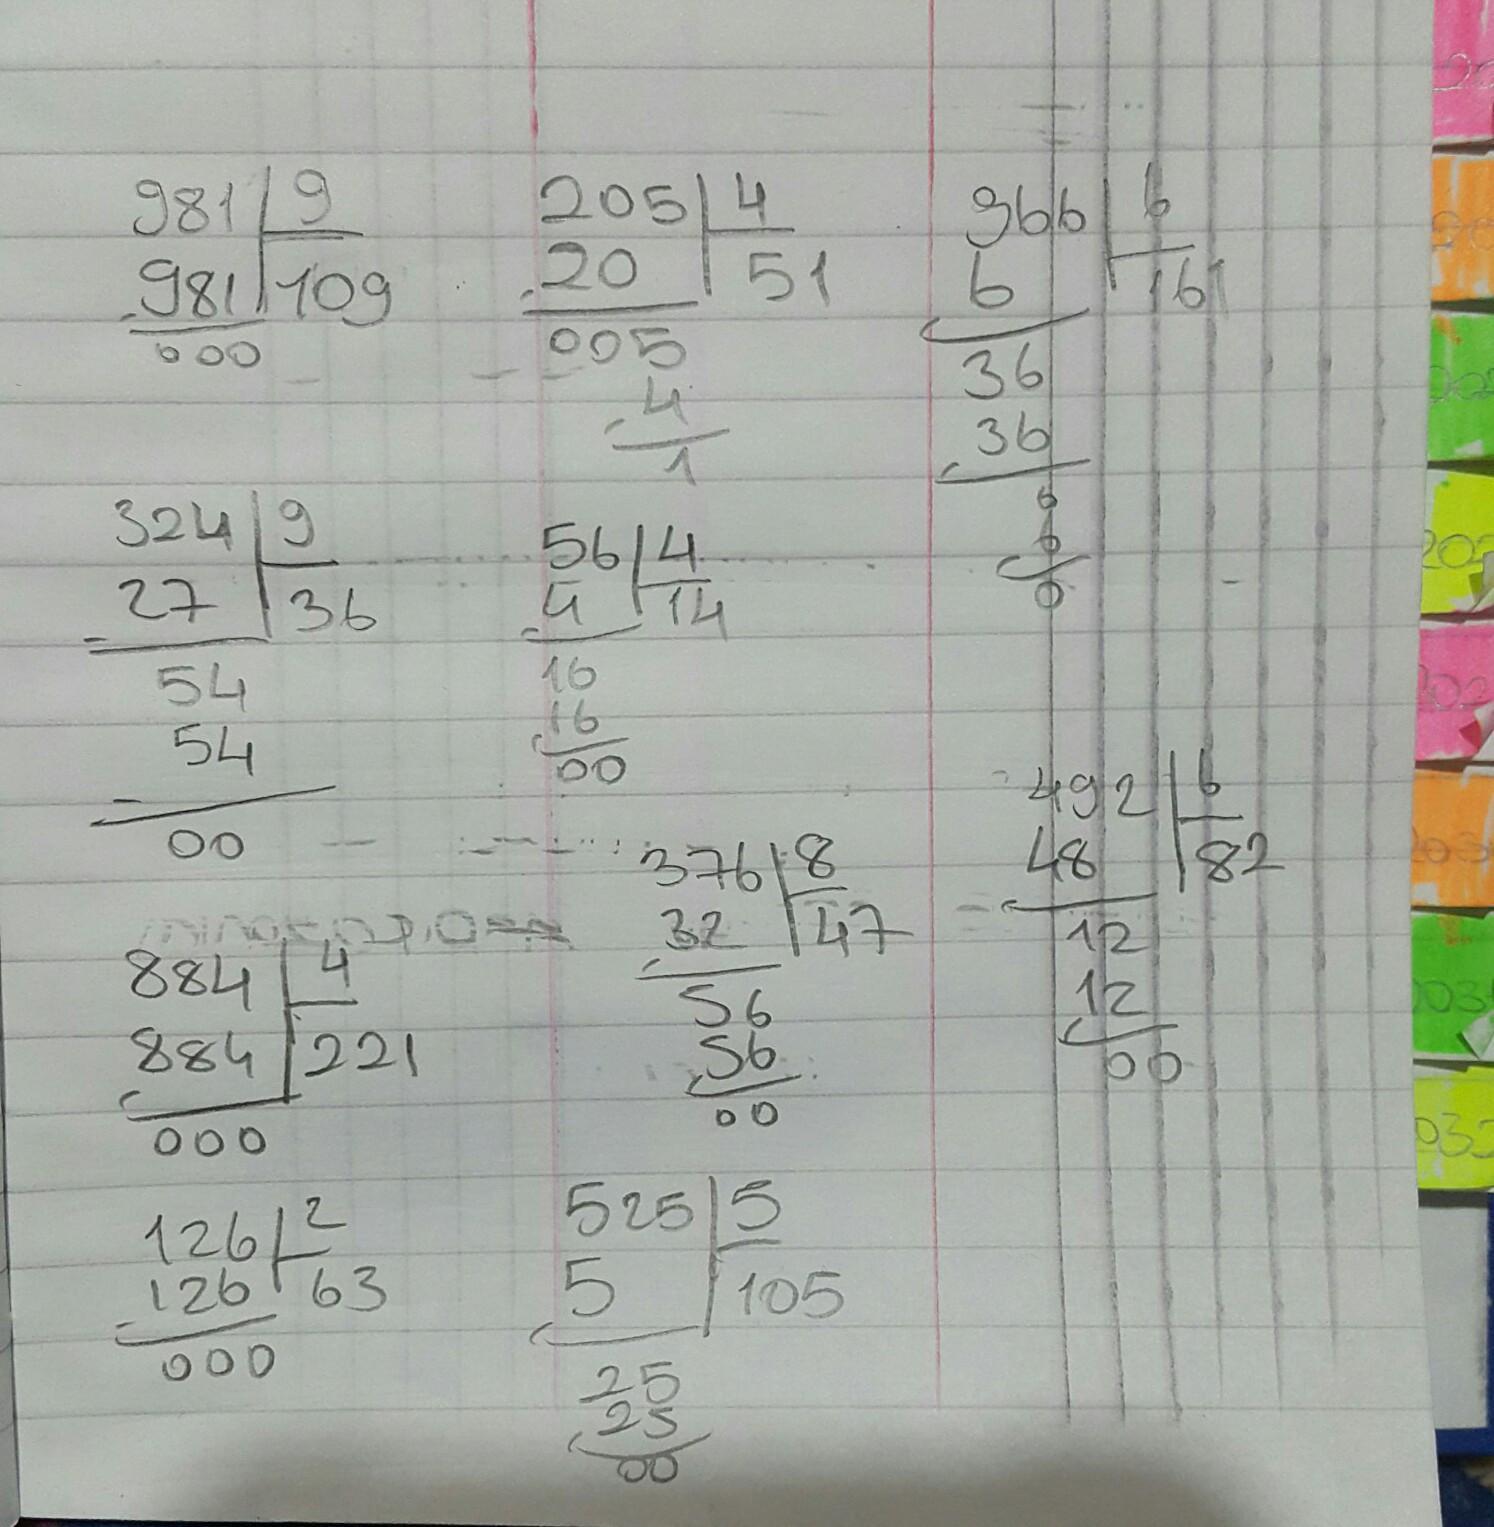 981 9
981 109
000
205 4
20 51
005
4
1
966 6
6 161
36
36
6
6
0
324 9
27 36
54
54
00
56 4
4 14
16
16
00
492 6
48 82
12
12
00
884 4
884 221
000
376 8
32 47
56
56
00
126 2
126 63
000
525 5
5 105
25
25
00